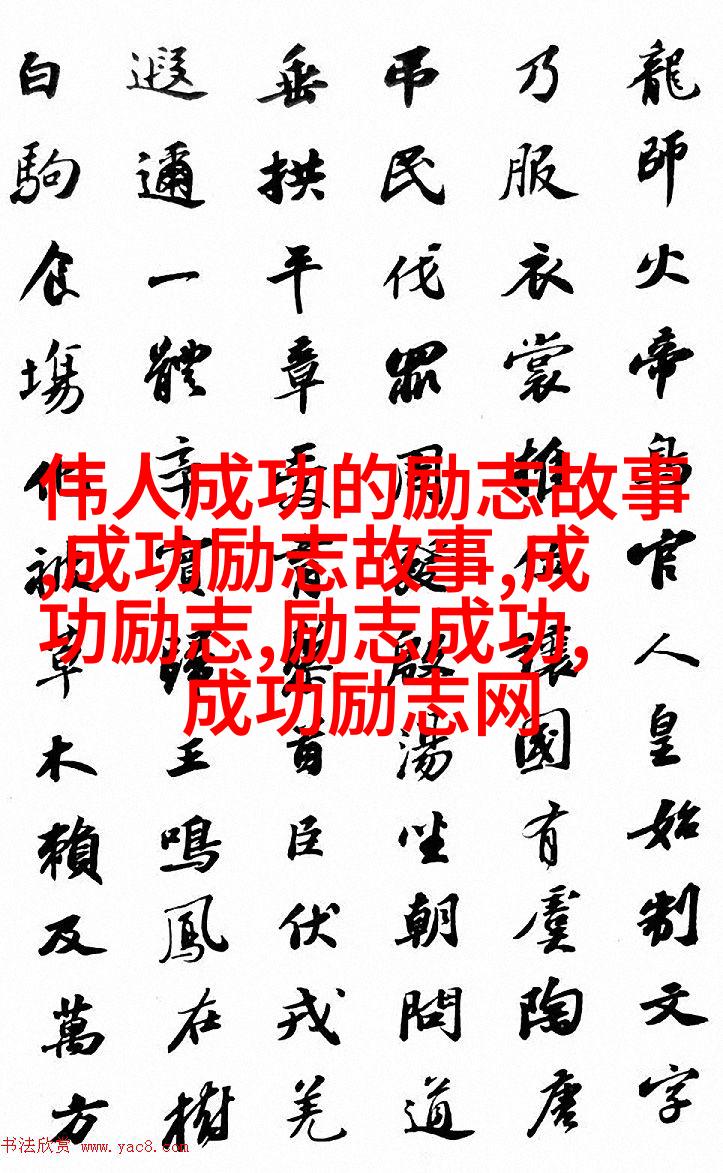 龍師火帝鳥官人皇始制文字
乃服衣裳推位讓國有虞陶唐
吊民伐罪周發殷湯坐朝問道
垂拱平章愛育黎首臣伏戎羌
遐邇一體率賓歸王鳴鳳在樹
白駒食場化被草木賴及萬方
伟人成功的励志故事
,成功励志故事,成
功励志,励志成功,
成功励志网
书法欣赏 www.yac8.com